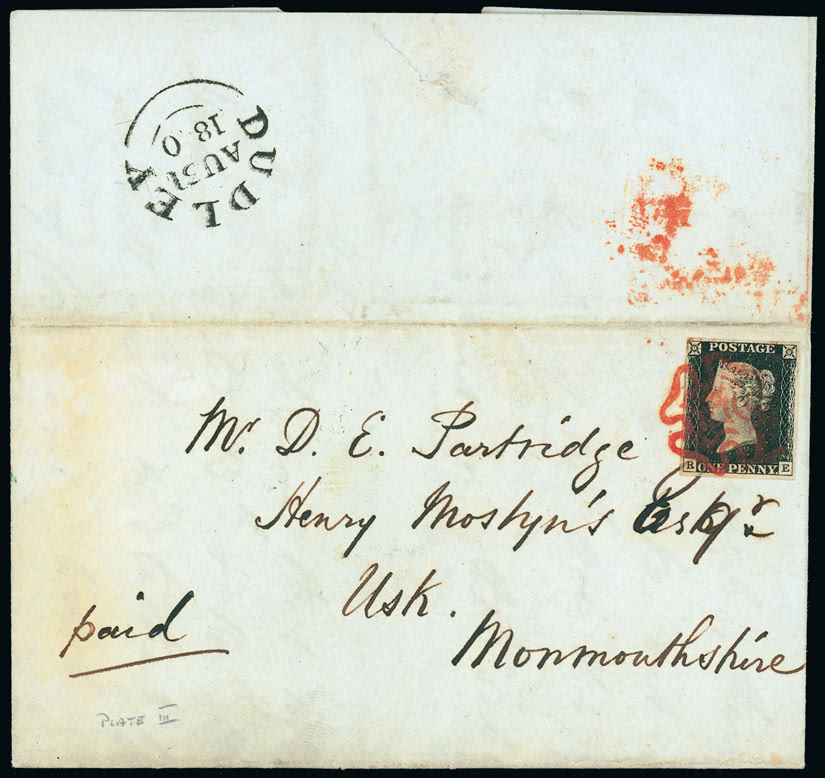 DUDLEY
AU 31
18 0
POSTAGE
R ONE PENNY E
Mr. D. E. Partridge
Henry Mostyn's Esqr
Usk.
Monmouthshire
paid
PLATE III